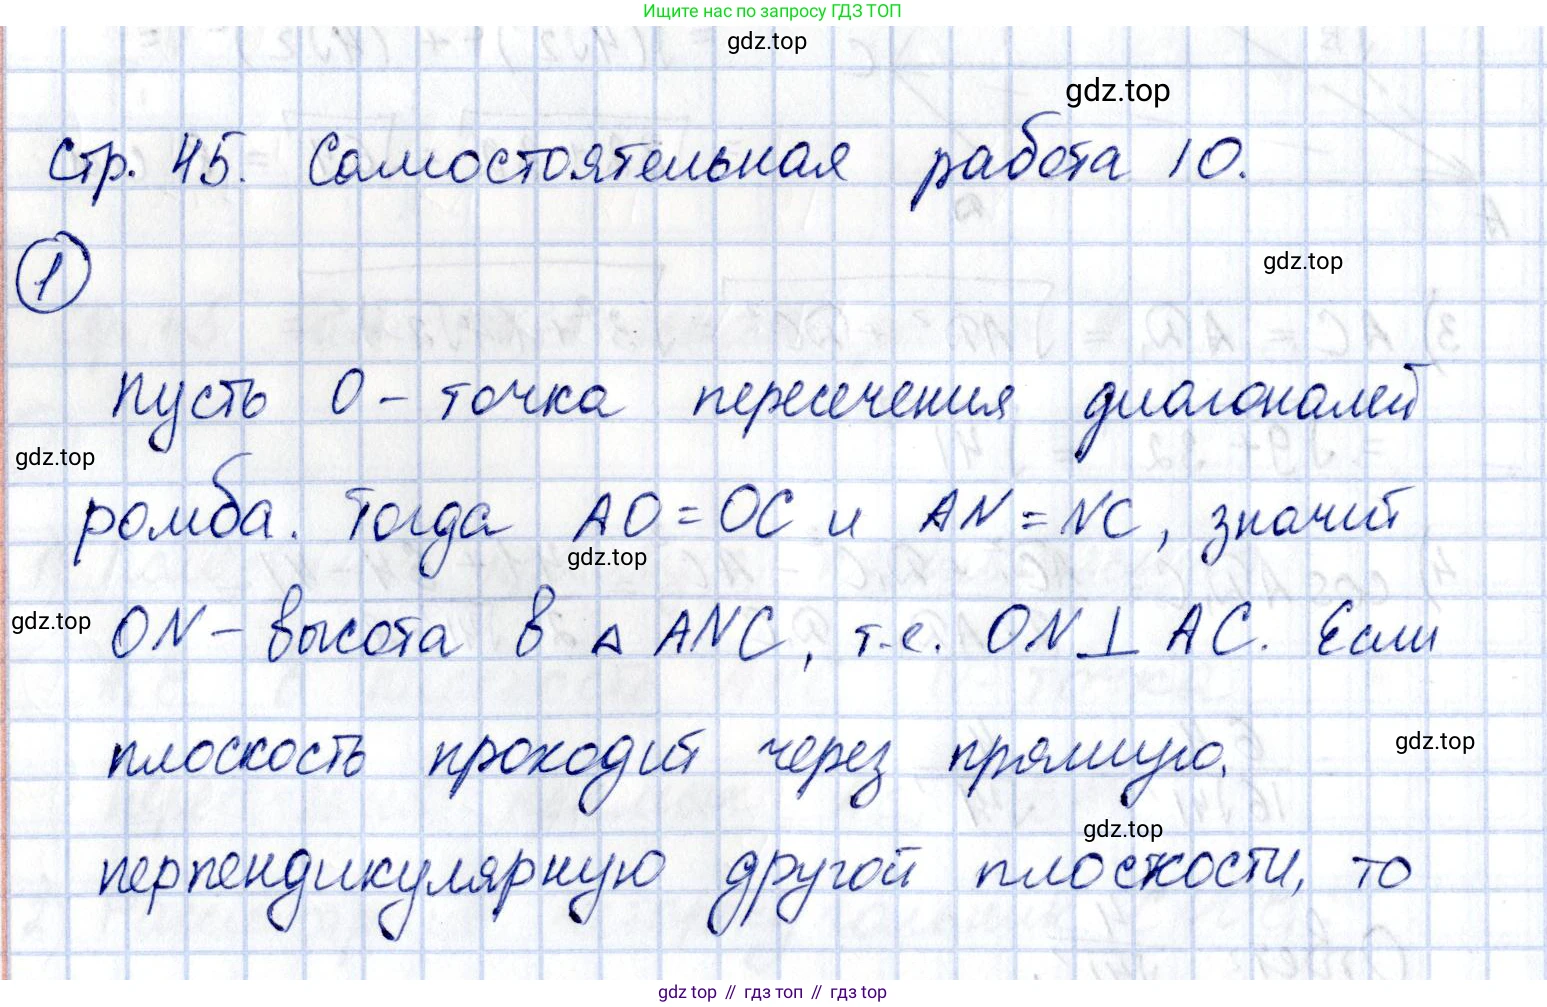 Ищите нас по запросу ГДЗ ТОП
gdz.top
gdz.top
Стр. 45. Самостоятельная работа 10.
gdz.top
1
Пусть O – точка пересечения диагоналей
gdz.top
ромба. Тогда AO = OC и AN = NC, значит
gdz.top
gdz.top
ON – высота в △ ANC, т.е. ON ⊥ AC. Если
плоскость проходит через прямую,
gdz.top
gdz.top
перпендикулярную другой плоскости, то
gdz top // гдз топ // гдз top